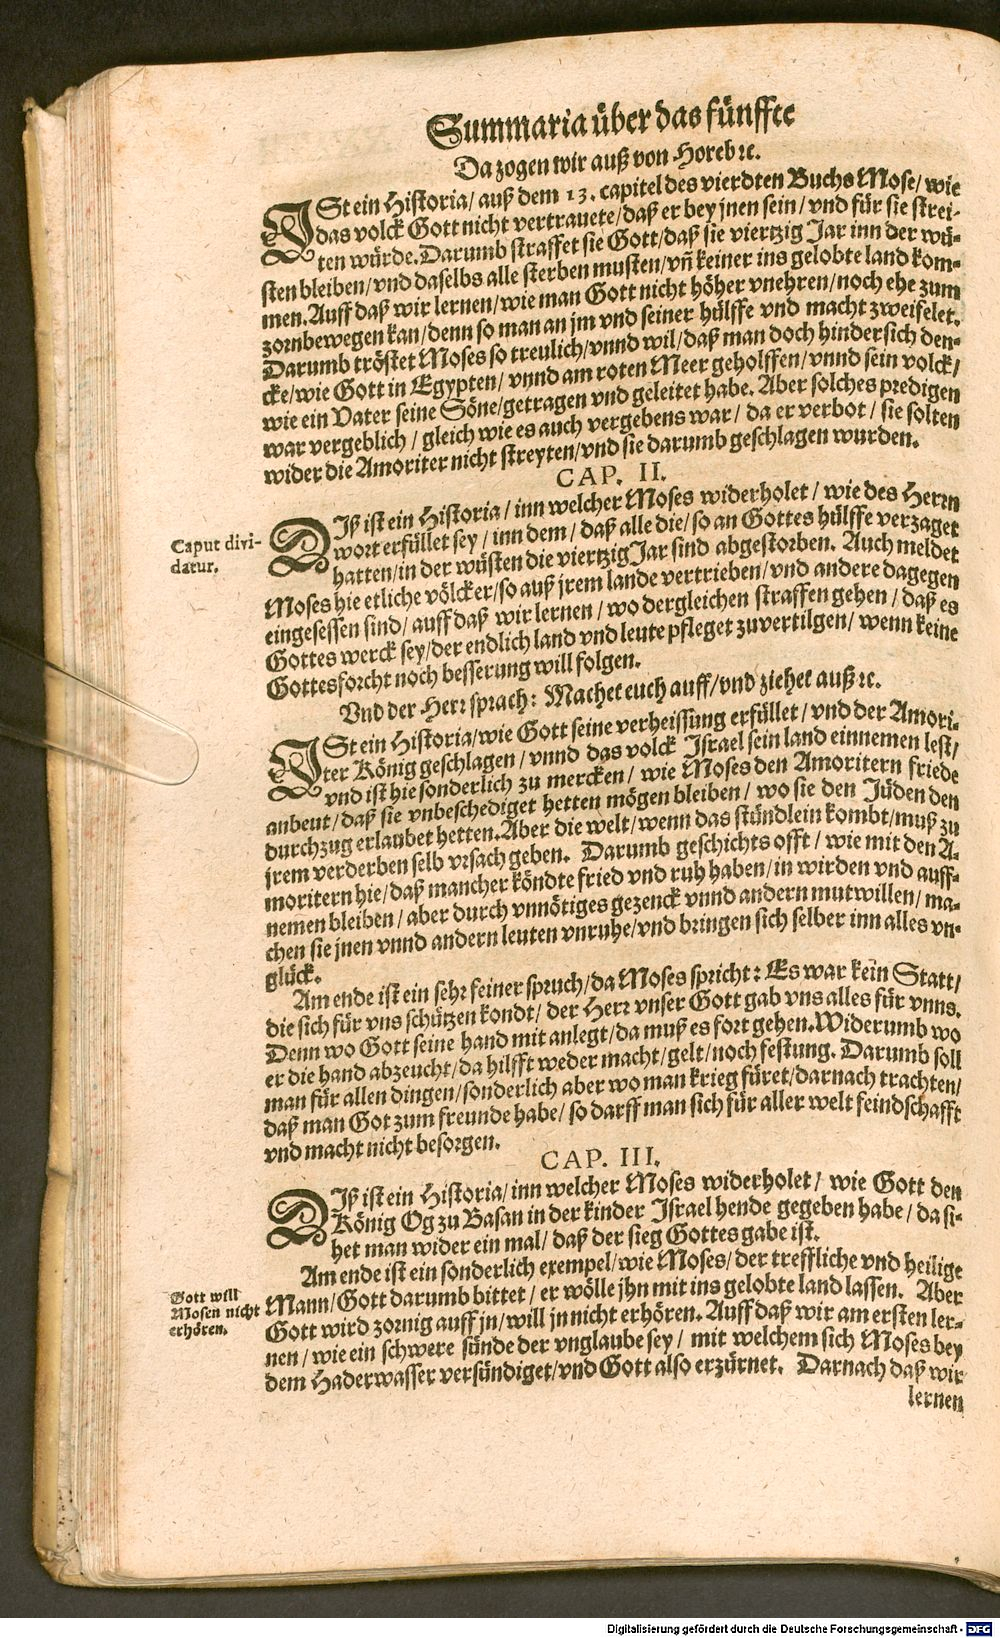 Summaria über das fünffte
Da zogen wir auß von Horeb ꝛc.
ISt ein Historia/ auß dem 13. capitel des vierdten Buchs Mose/ wie
das volck Gott nicht vertrauete/ daß er bey jnen sein/ vnd für sie strei-
ten würde. Darumb straffet sie Gott/ daß sie viertzig Jar inn der wü-
sten bleiben/ vnd daselbs alle sterben musten/ vñ keiner ins gelobte land kom-
men. Auff daß wir lernen/ wie man Gott nicht höher vnehren/ noch ehe zum
zorn bewegen kan/ denn so man an jm vnd seiner hülffe vnd macht zweifelet.
Darumb tröstet Moses so treulich/ vnnd wil/ daß man doch hindersich den-
cke/ wie Gott in Egypten/ vnnd am roten Meer geholffen/ vnnd sein volck/
wie ein Vater seine Söne/ getragen vnd geleitet habe. Aber solches predigen
war vergeblich/ gleich wie es auch vergebens war/ da er verbot/ sie solten
wider die Amoriter nicht streyten/ vnd sie darumb geschlagen wurden.
CAP. II.
DIß ist ein Historia/ inn welcher Moses widerholet/ wie des Herrn
wort erfüllet sey/ inn dem/ daß alle die/ so an Gottes hülffe verzaget
hatten/ in der wüsten die viertzig Jar sind abgestorben. Auch meldet
Moses hie etliche völcker/ so auß jrem lande vertrieben/ vnd andere dagegen
eingesessen sind/ auff daß wir lernen/ wo dergleichen straffen gehen/ daß es
Gottes werck sey/ der endlich land vnd leute pfleget zuvertilgen/ wenn keine
Gottesforcht noch besserung will folgen.
Caput divi-
datur.
Vnd der Herr sprach: Machet euch auff/ vnd ziehet auß ꝛc.
ISt ein Historia/ wie Gott seine verheissung erfüllet/ vnd der Amori-
ter König geschlagen/ vnnd das volck Israel sein land einnemen lest/
vnd ist hie sonderlich zu mercken/ wie Moses den Amoritern friede
anbeut/ daß sie vnbeschediget hetten mögen bleiben/ wo sie den Jüden den
durchzug erlaubet hetten. Aber die welt/ wenn das stündlein kombt/ muß zu
jrem verderben selb vrsach geben. Darumb geschichts offt/ wie mit den A-
moritern hie/ daß mancher köndte fried vnd ruh haben/ in wirden vnd auff-
nemen bleiben/ aber durch vnnötiges gezenck vnnd andern mutwillen/ ma-
chen sie jnen vnnd andern leuten vnruhe/ vnd bringen sich selber inn alles vn-
glück.
Am ende ist ein sehr feiner spruch/ da Moses spricht: Es war kein Statt/
die sich für vns schützen kondt/ der Herr vnser Gott gab vns alles für vnns.
Denn wo Gott seine hand mit anlegt/ da muß es fort gehen. Widerumb wo
er die hand abzeucht/ da hilfft weder macht/ gelt/ noch festung. Darumb soll
man für allen dingen/ sonderlich aber wo man krieg füret/ darnach trachten/
daß man Got zum freunde habe/ so darff man sich für aller welt feindschafft
vnd macht nicht besorgen.
CAP. III.
DIß ist ein Historia/ inn welcher Moses widerholet/ wie Gott den
König Og zu Basan in der kinder Israel hende gegeben habe/ da si-
het man wider ein mal/ daß der sieg Gottes gabe ist.
Am ende ist ein sonderlich exempel/ wie Moses/ der treffliche vnd heilige
Mann/ Gott darumb bittet/ er wölle jhn mit ins gelobte land lassen. Aber
Gott wird zornig auff jn/ will jn nicht erhören. Auff daß wir am ersten ler-
nen/ wie ein schwere sünde der vnglaube sey/ mit welchem sich Moses bey
dem Haderwasser versündiget/ vnd Gott also erzürnet. Darnach daß wir
lernen
Gott will
Mosen nicht
erhören.
Digitalisierung gefördert durch die Deutsche Forschungsgemeinschaft - DFG